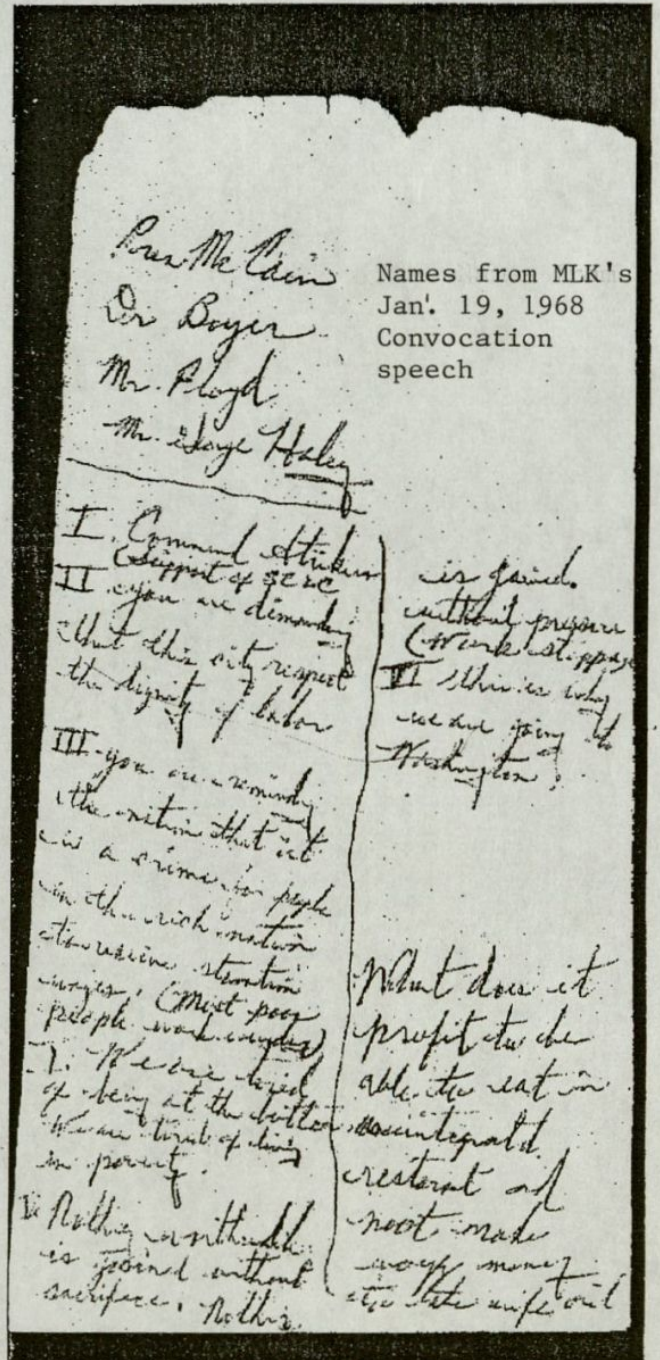 Pres Mc Cain
Dr Boyer
Mr. Floyd
Mr. Haley
Names from MLK's
Jan'. 19, 1968
Convocation
speech
I. Commend Strikers
(Support of SCLC
II you are demanding
that this city respect
the dignity of labor
III you are reminding
the nation that it
is a crime for people
in the rich nation
to receive starvation
wages. (Most poor
people work everyday)
We are tired
of being at the bottom
We are tired of living
in poverty.
V. Nothing worthwhile
is gained without
sacrifice. Nothing
is gained.
without pressure
(Work stoppage
VI This is why
we are going to
Washington.
What does it
profit to be
able to eat in
integrated
restorant and
not make
money
to take wife out